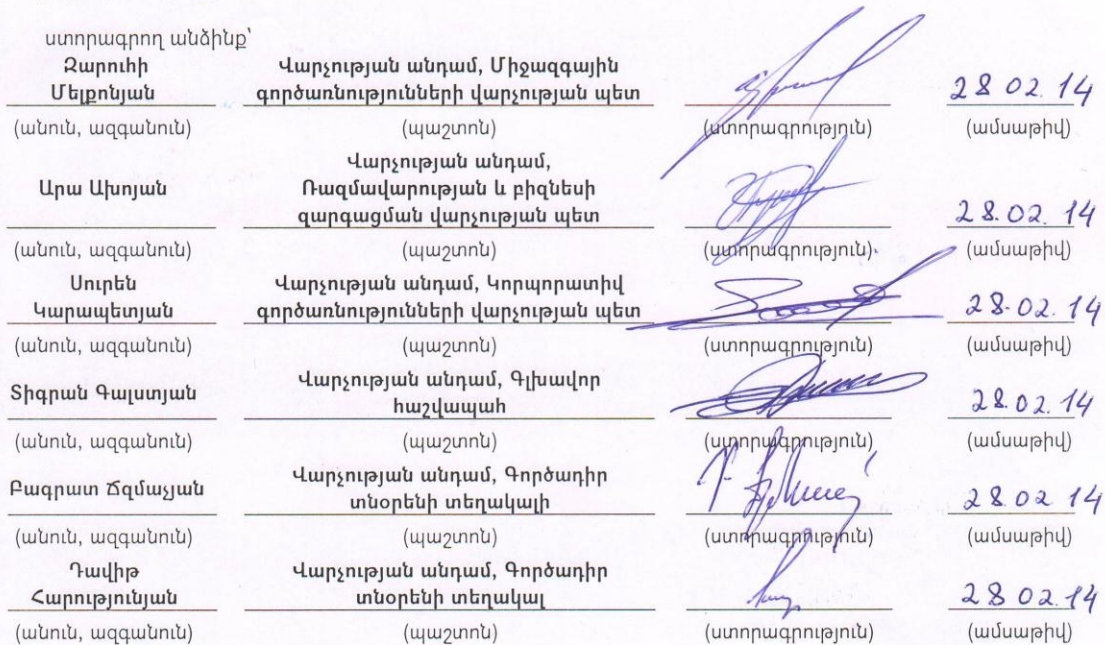 ստորագրող անձինք՝
Զարուհի Մելքոնյան
Վարչության անդամ, Միջազգային գործառնությունների վարչության պետ
28 02. 14
(անուն, ազգանուն) (պաշտոն) (ստորագրություն) (ամսաթիվ)
Արա Ախոյան
Վարչության անդամ,
Ռազմավարության և բիզնեսի
զարգացման վարչության պետ
28.02. 14
(անուն, ազգանուն) (պաշտոն) (ստորագրություն) (ամսաթիվ)
Սուրեն Կարապետյան
Վարչության անդամ, Կորպորատիվ
գործառնությունների վարչության պետ
28.02. 14
(անուն, ազգանուն) (պաշտոն) (ստորագրություն) (ամսաթիվ)
Տիգրան Գալստյան
Վարչության անդամ, Գլխավոր
հաշվապահ
28.02. 14
(անուն, ազգանուն) (պաշտոն) (ստորագրություն) (ամսաթիվ)
Բագրատ Ճզմաչյան
Վարչության անդամ, Գործադիր
տնօրենի տեղակալի
28.02 14
(անուն, ազգանուն) (պաշտոն) (ստորագրություն) (ամսաթիվ)
Դավիթ
Հարությունյան
Վարչության անդամ, Գործադիր
տնօրենի տեղակալ
28 02.14
(անուն, ազգանուն) (պաշտոն) (ստորագրություն) (ամսաթիվ)